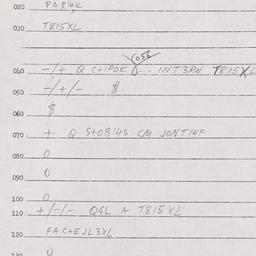 020 PARI4K
030 T815XL
1056
040 -/+ Q C+IPOE 0... INT3RN T815XL
050 -/+/- $
060 $
070 + Q S+OBI4S CM JONTI4F
080 0
090 0
100 0
110 +/-/- QGL A T815XL
120 FAC+EJL3XL
130 0